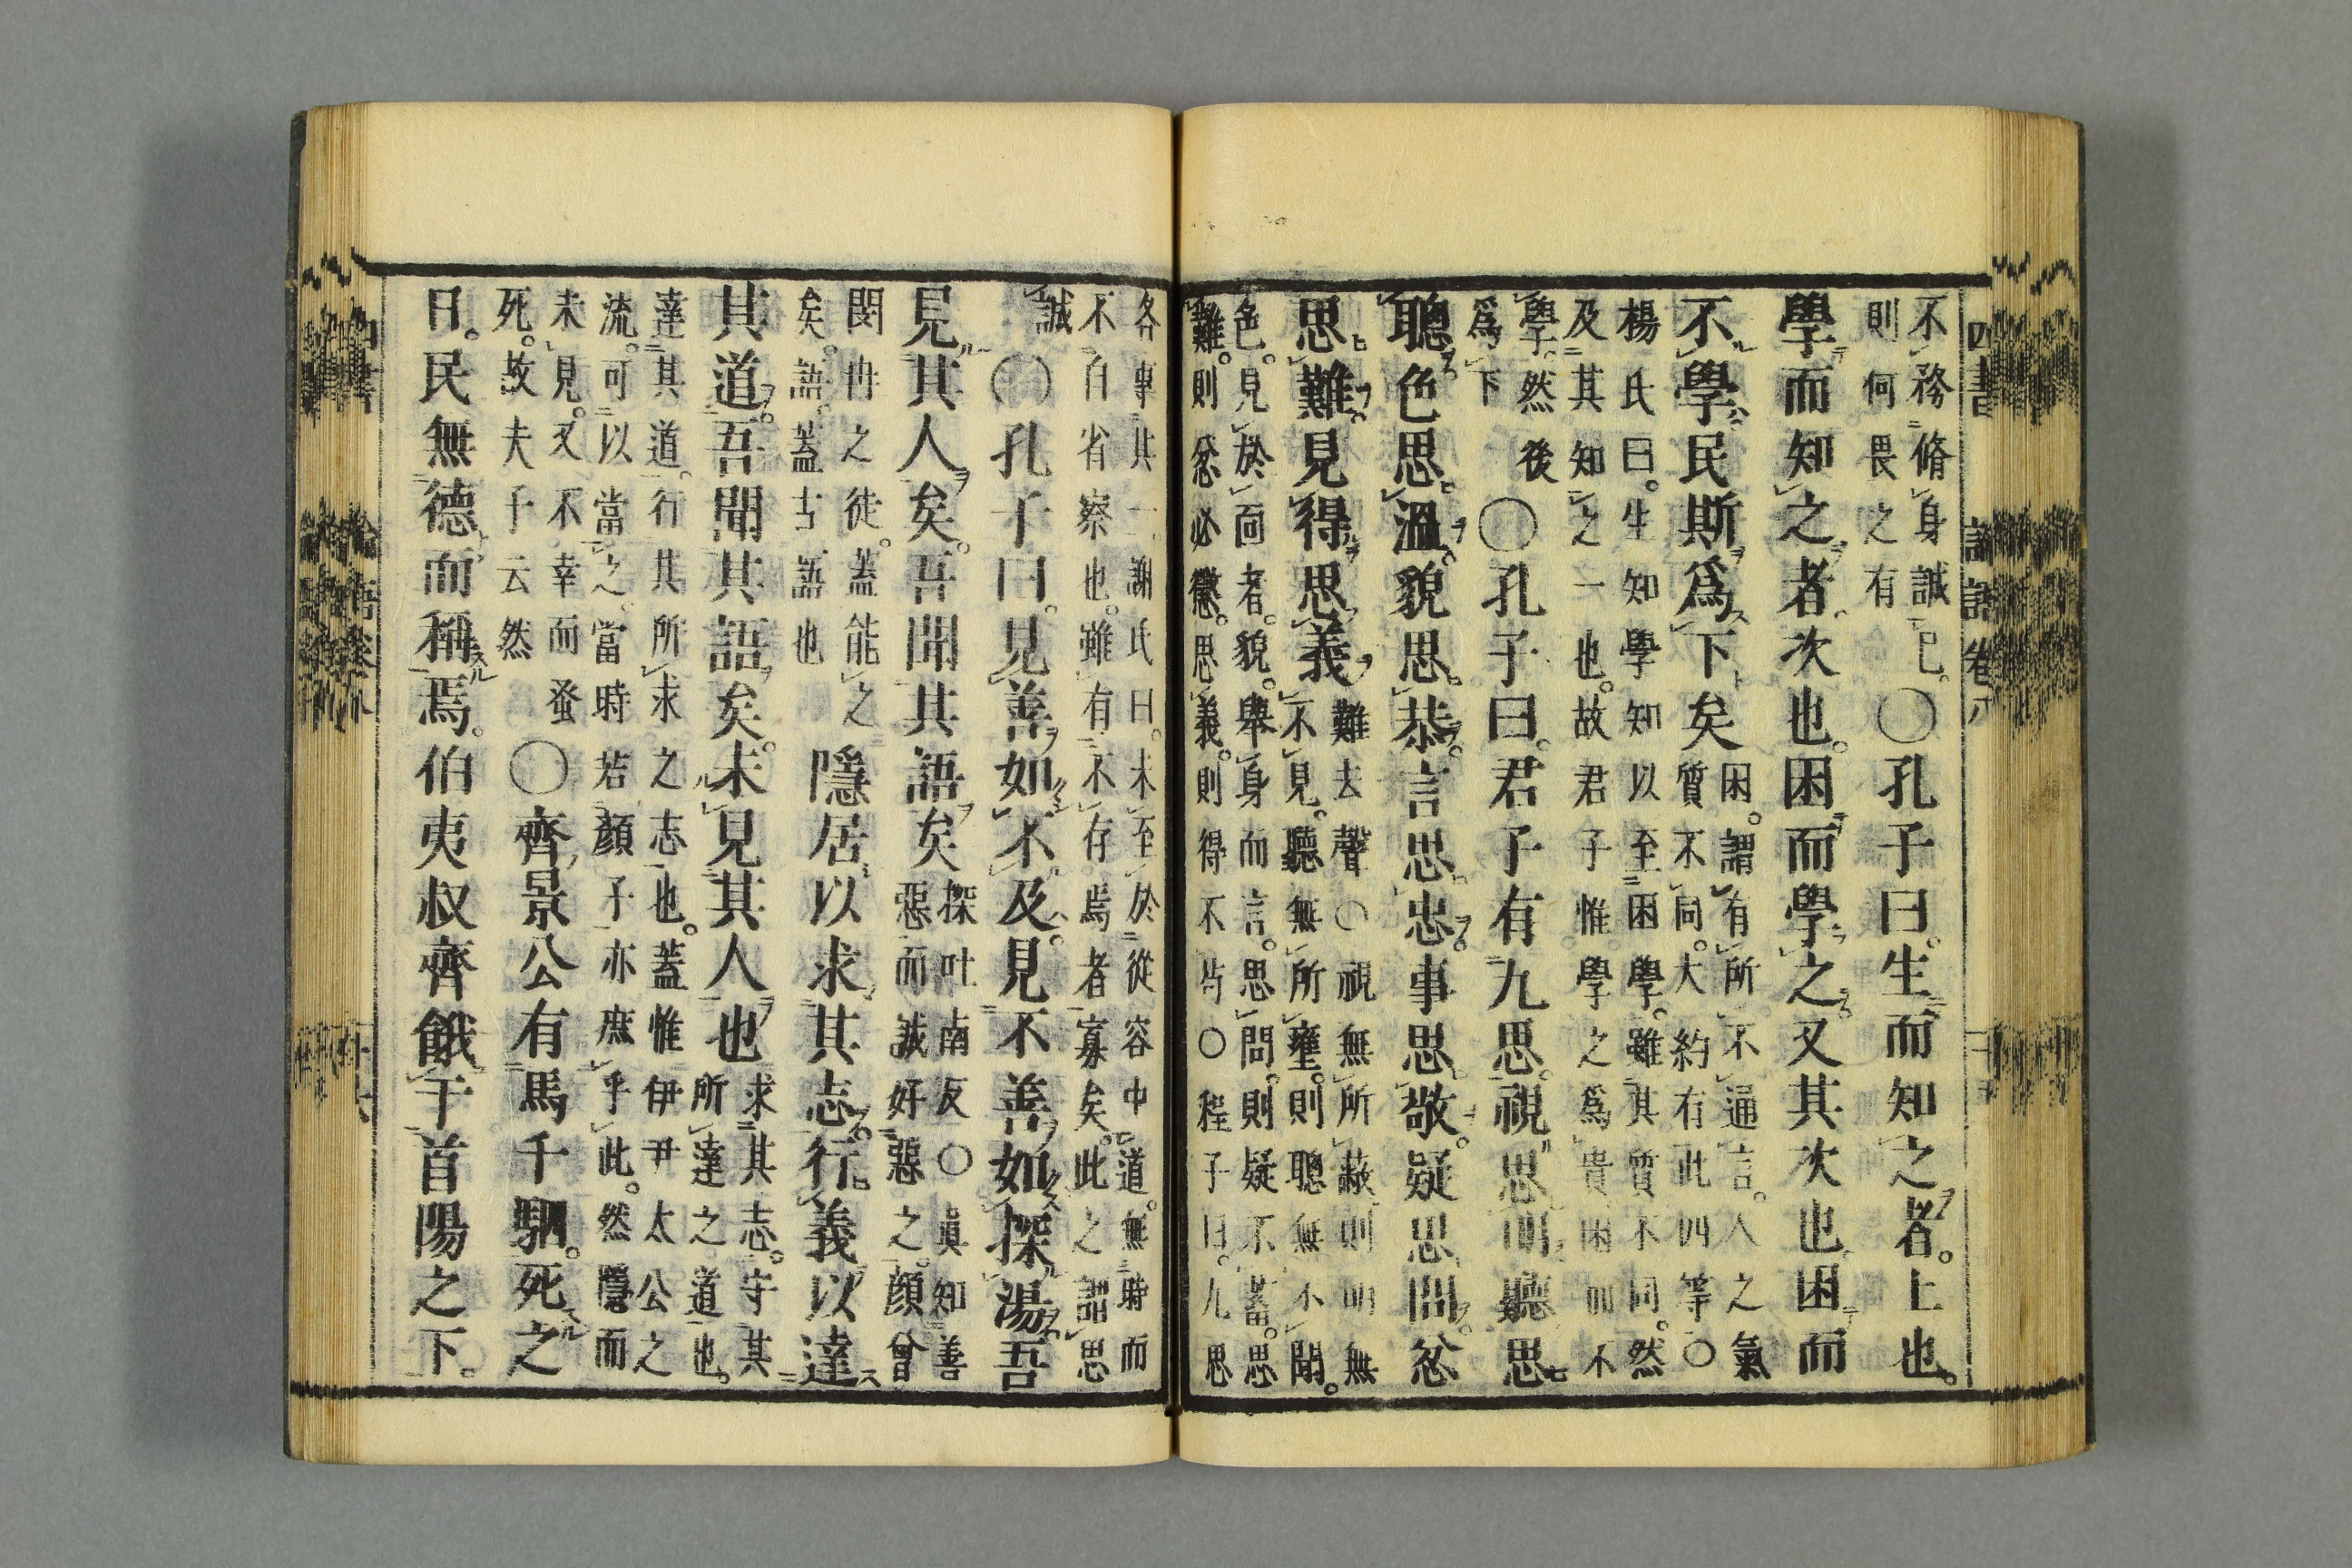 四書　論語卷八
不務脩身誠己。
則何畏之有
○孔子曰。生而知之者。上也。
學而知之者。次也。困而學之。又其次也。困而
不學民斯爲下矣
困。謂有所不通言。人之氣
質不同。大約有此四等○
楊氏曰。生知學知以至困學。雖其質不同。然
及其知之一也。故君子惟學之爲貴困而不
學。然後
爲下
○孔子曰。君子有九思。視思明聽思
聰。色思溫。貌思恭。言思忠。事思敬。疑思問。忿
思難。見得思義
難去聲○視無所蔽則明無
不見。聽無所壅。則聰無不聞。
色。見於面者。貌。舉身而言。思問。則疑不蓄。思
難。則忿必懲。思義。則得不苟○程子曰。九思
各專其一謝氏曰。未至於從容中道。無時而
不自省察也。雖有不存焉者寡矣。此之謂思
誠
○孔子曰。見善如不及。見不善如探湯。吾
見其人矣。吾聞其語矣
探吐南反○眞知善
惡而誠好惡之。顔曾
閔冉之徒。蓋能之
矣。語。蓋古語也
隱居以求其志。行義以達
其道。吾聞其語矣。未見其人也
求其志。守其
所達之道也。
達其道。行其所求之志也。蓋惟伊尹太公之
流。可以當之。當時若顔子亦庶乎此。然隱而
未見。又不幸而蚤
死。故夫子云然
○齊景公有馬千駟。死之
日。民無德而稱焉。伯夷叔齊餓于首陽之下。